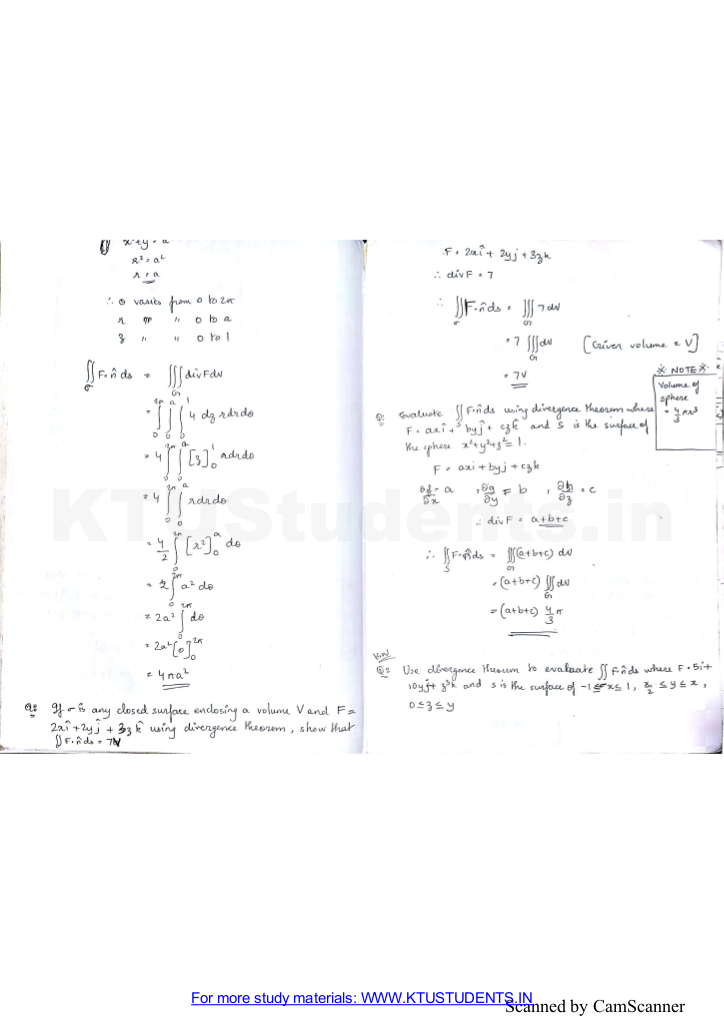 x²+y² = a
r² = a²
r = a
∴ θ varies from 0 to 2π
r " " 0 to a
z " " 0 to 1
∬σ F·n̂ ds = ∭G div F dv
= ∫₀^2π ∫₀^a ∫₀^1 4 dz r dr dθ
= 4 ∫₀^2π ∫₀^a [z]₀^1 r dr dθ
= 4 ∫₀^2π ∫₀^a r dr dθ
= 4/2 ∫₀^2π [r²]₀^a dθ
= 2 ∫₀^2π a² dθ
= 2a² ∫₀^2π dθ
= 2a² [θ]₀^2π
= 4πa²
Q: If σ is any closed surface enclosing a volume V and F =
2xî + 2yĵ + 3zk̂ using divergence theorem, show that
∬ F·n̂ ds = 7V
F = 2xî + 2yĵ + 3zk
∴ div F = 7
∴ ∬σ F·n̂ ds = ∭G 7 dv
= 7 ∭G dv [Given volume = V]
= 7V
※ NOTE ※
Volume of
sphere
= 4/3 πr³
Q: Evaluate ∬S F·n̂ ds using divergence theorem where
F = axî + byĵ + czk̂ and S is the surface of
the sphere x²+y²+z² = 1.
F = axi + byj + czk
∂f/∂x = a , ∂g/∂y = b , ∂h/∂z = c
∴ div F = a+b+c
∴ ∬S F·n̂ ds = ∭G (a+b+c) dv
= (a+b+c) ∭G dv
= (a+b+c) 4/3 π
Q: Use divergence theorem to evaluate ∬ F·n̂ ds where F = 5i +
10yj + z³k and S is the surface of -1 ≤ x ≤ 1, x/2 ≤ y ≤ x,
0 ≤ z ≤ y
KTUStudents.in
For more study materials: WWW.KTUSTUDENTS.IN
Scanned by CamScanner